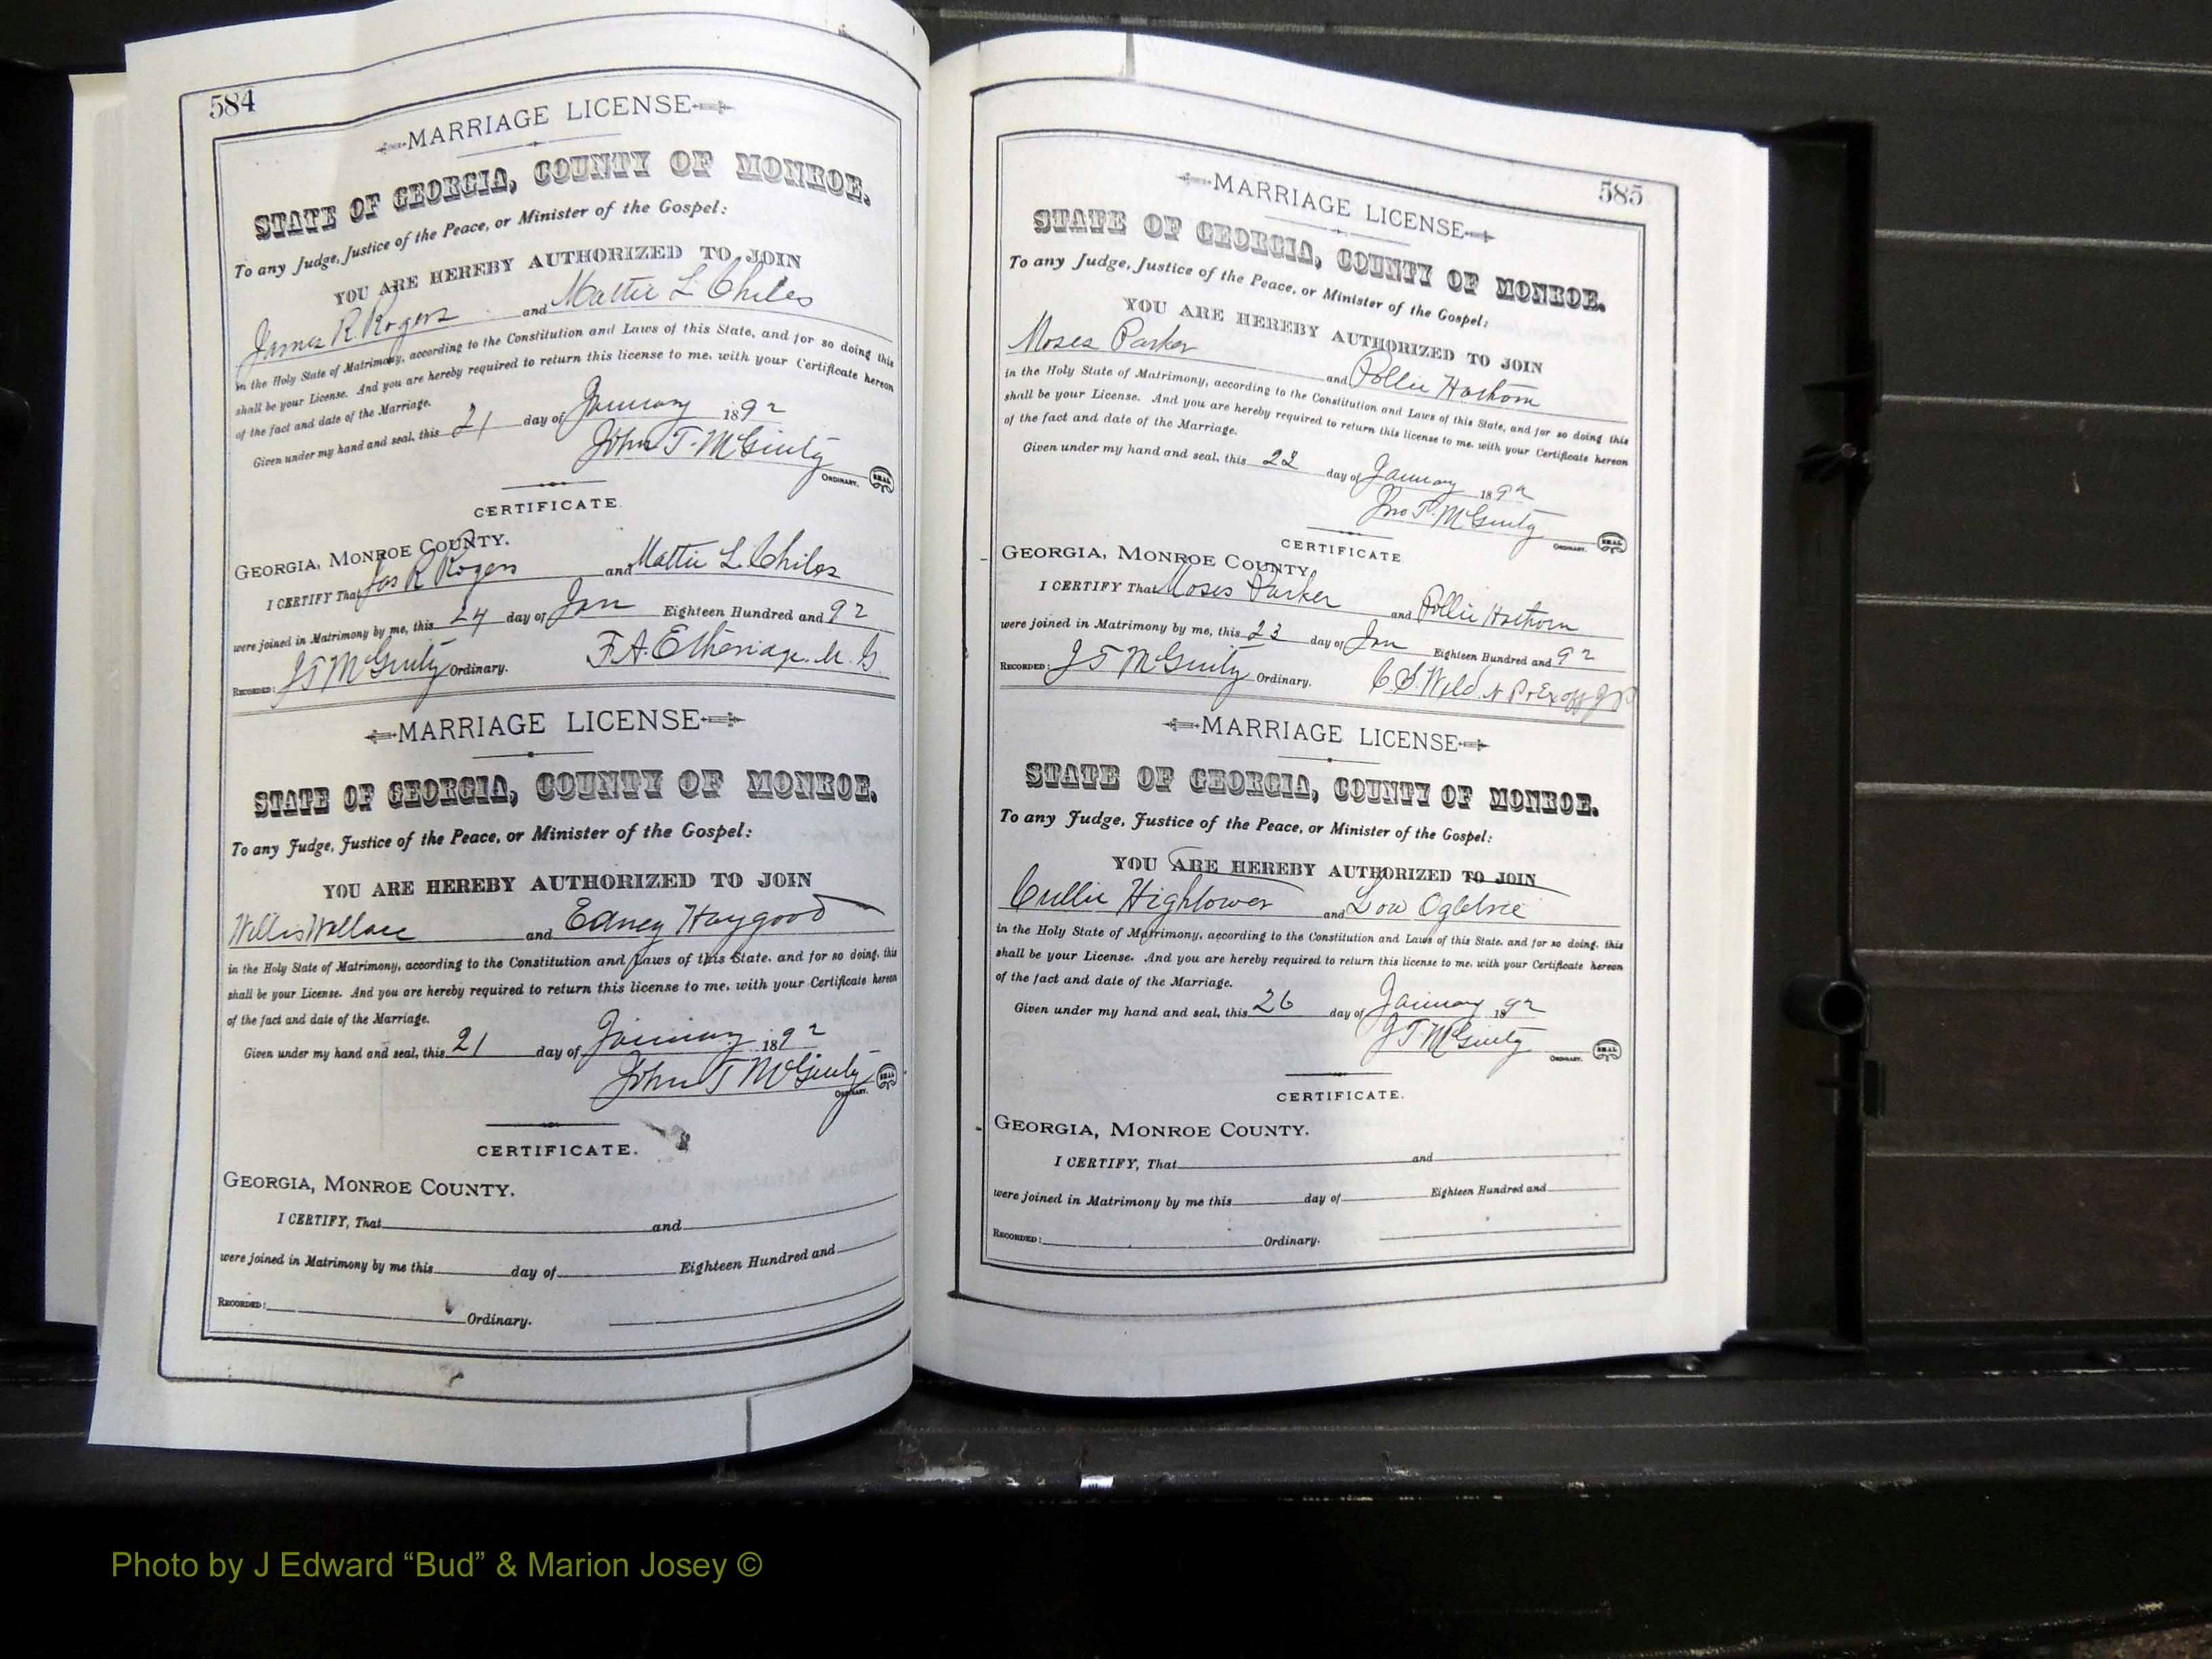 584
MARRIAGE LICENSE
STATE OF GEORGIA, COUNTY OF MONROE.
To any Judge, Justice of the Peace, or Minister of the Gospel:
YOU ARE HEREBY AUTHORIZED TO JOIN
James R. Rogers and Mattie L. Chiles
in the Holy State of Matrimony, according to the Constitution and Laws of this State, and for so doing this
shall be your License. And you are hereby required to return this license to me, with your Certificate hereon
of the fact and date of the Marriage.
Given under my hand and seal, this 21 day of January 1892
John T. McGinty
ORDINARY. SEAL
CERTIFICATE
GEORGIA, MONROE COUNTY.
I CERTIFY That Jas R Rogers and Mattie L. Chiles
were joined in Matrimony by me, this 24 day of Jan Eighteen Hundred and 92
RECORDED: J T McGinty Ordinary. F. A. Etheriage. M. G.
MARRIAGE LICENSE
STATE OF GEORGIA, COUNTY OF MONROE.
To any Judge, Justice of the Peace, or Minister of the Gospel:
YOU ARE HEREBY AUTHORIZED TO JOIN
Willis Wallace and Edney Haygood
in the Holy State of Matrimony, according to the Constitution and Laws of this State, and for so doing, this
shall be your License. And you are hereby required to return this license to me, with your Certificate hereon
of the fact and date of the Marriage.
Given under my hand and seal, this 21 day of January 1892
John T McGinty
ORDINARY. SEAL
CERTIFICATE.
GEORGIA, MONROE COUNTY.
I CERTIFY, That and
were joined in Matrimony by me this day of Eighteen Hundred and
RECORDED: Ordinary.
585
MARRIAGE LICENSE
STATE OF GEORGIA, COUNTY OF MONROE.
To any Judge, Justice of the Peace, or Minister of the Gospel:
YOU ARE HEREBY AUTHORIZED TO JOIN
Moses Parker and Pollie Hathorn
in the Holy State of Matrimony, according to the Constitution and Laws of this State, and for so doing this
shall be your License. And you are hereby required to return this license to me, with your Certificate hereon
of the fact and date of the Marriage.
Given under my hand and seal, this 22 day of January 1892
Jno T. McGinty
ORDINARY. SEAL
CERTIFICATE
GEORGIA, MONROE COUNTY
I CERTIFY That Moses Parker and Pollie Hathorn
were joined in Matrimony by me, this 23 day of Jan Eighteen Hundred and 92
RECORDED: J T McGinty Ordinary. N P & Ex off J P
MARRIAGE LICENSE
STATE OF GEORGIA, COUNTY OF MONROE.
To any Judge, Justice of the Peace, or Minister of the Gospel:
YOU ARE HEREBY AUTHORIZED TO JOIN
Cullie Hightower and Lou Ogletree
in the Holy State of Matrimony, according to the Constitution and Laws of this State, and for so doing, this
shall be your License. And you are hereby required to return this license to me, with your Certificate hereon
of the fact and date of the Marriage.
Given under my hand and seal, this 26 day of January 1892
J T. McGinty
ORDINARY. SEAL
CERTIFICATE.
GEORGIA, MONROE COUNTY.
I CERTIFY, That and
were joined in Matrimony by me this day of Eighteen Hundred and
RECORDED: Ordinary.
Photo by J Edward “Bud” & Marion Josey ©